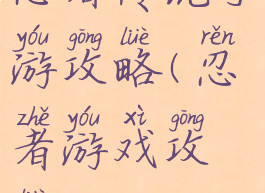 yóu gōng lüè rěn
游攻略(忍
zhě yóu xì gōng
者游戏攻